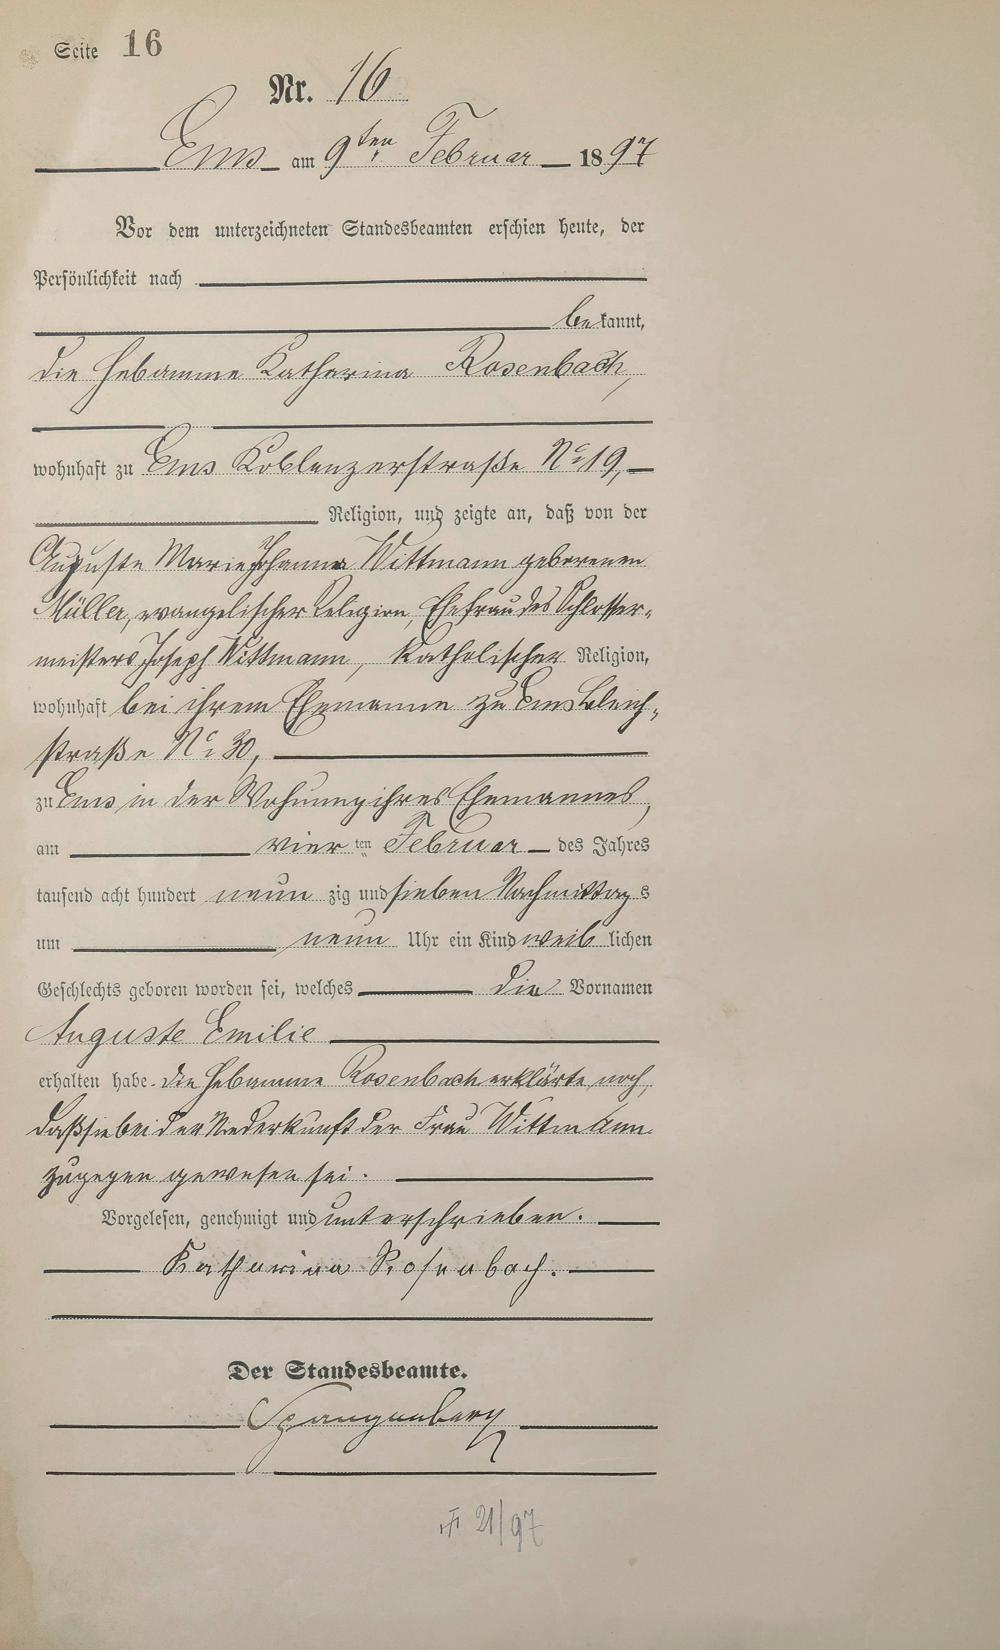 Seite 16
Nr. 16
Ems am 9ten Februar 1897
Vor dem unterzeichneten Standesbeamten erschien heute, der
Persönlichkeit nach
bekannt,
die Hebamme Katharina Rosenbach,
wohnhaft zu Ems Koblenzerstraße No 19,
Religion, und zeigte an, daß von der
Auguste Marie Johanna Wittmann geborenen
Müller, evangelischer Religion, Ehefrau des Schlosser-
meisters Joseph Wittmann, katholischer Religion,
wohnhaft bei ihrem Ehemanne zu Ems Bleich-
straße No 30,
zu Ems in der Wohnung ihres Ehemannes,
am vierten Februar des Jahres
tausend acht hundert neunzig und sieben Nachmittags
um neun Uhr ein Kind weiblichen
Geschlechts geboren worden sei, welches die Vornamen
Auguste Emilie
erhalten habe. Die Hebamme Rosenbach erklärte noch,
daß sie bei der Niederkunft der Frau Wittmann
zugegen gewesen sei.
Vorgelesen, genehmigt und unterschrieben.
Katharina Rosenbach.
Der Standesbeamte.
Spangenberg
21/97